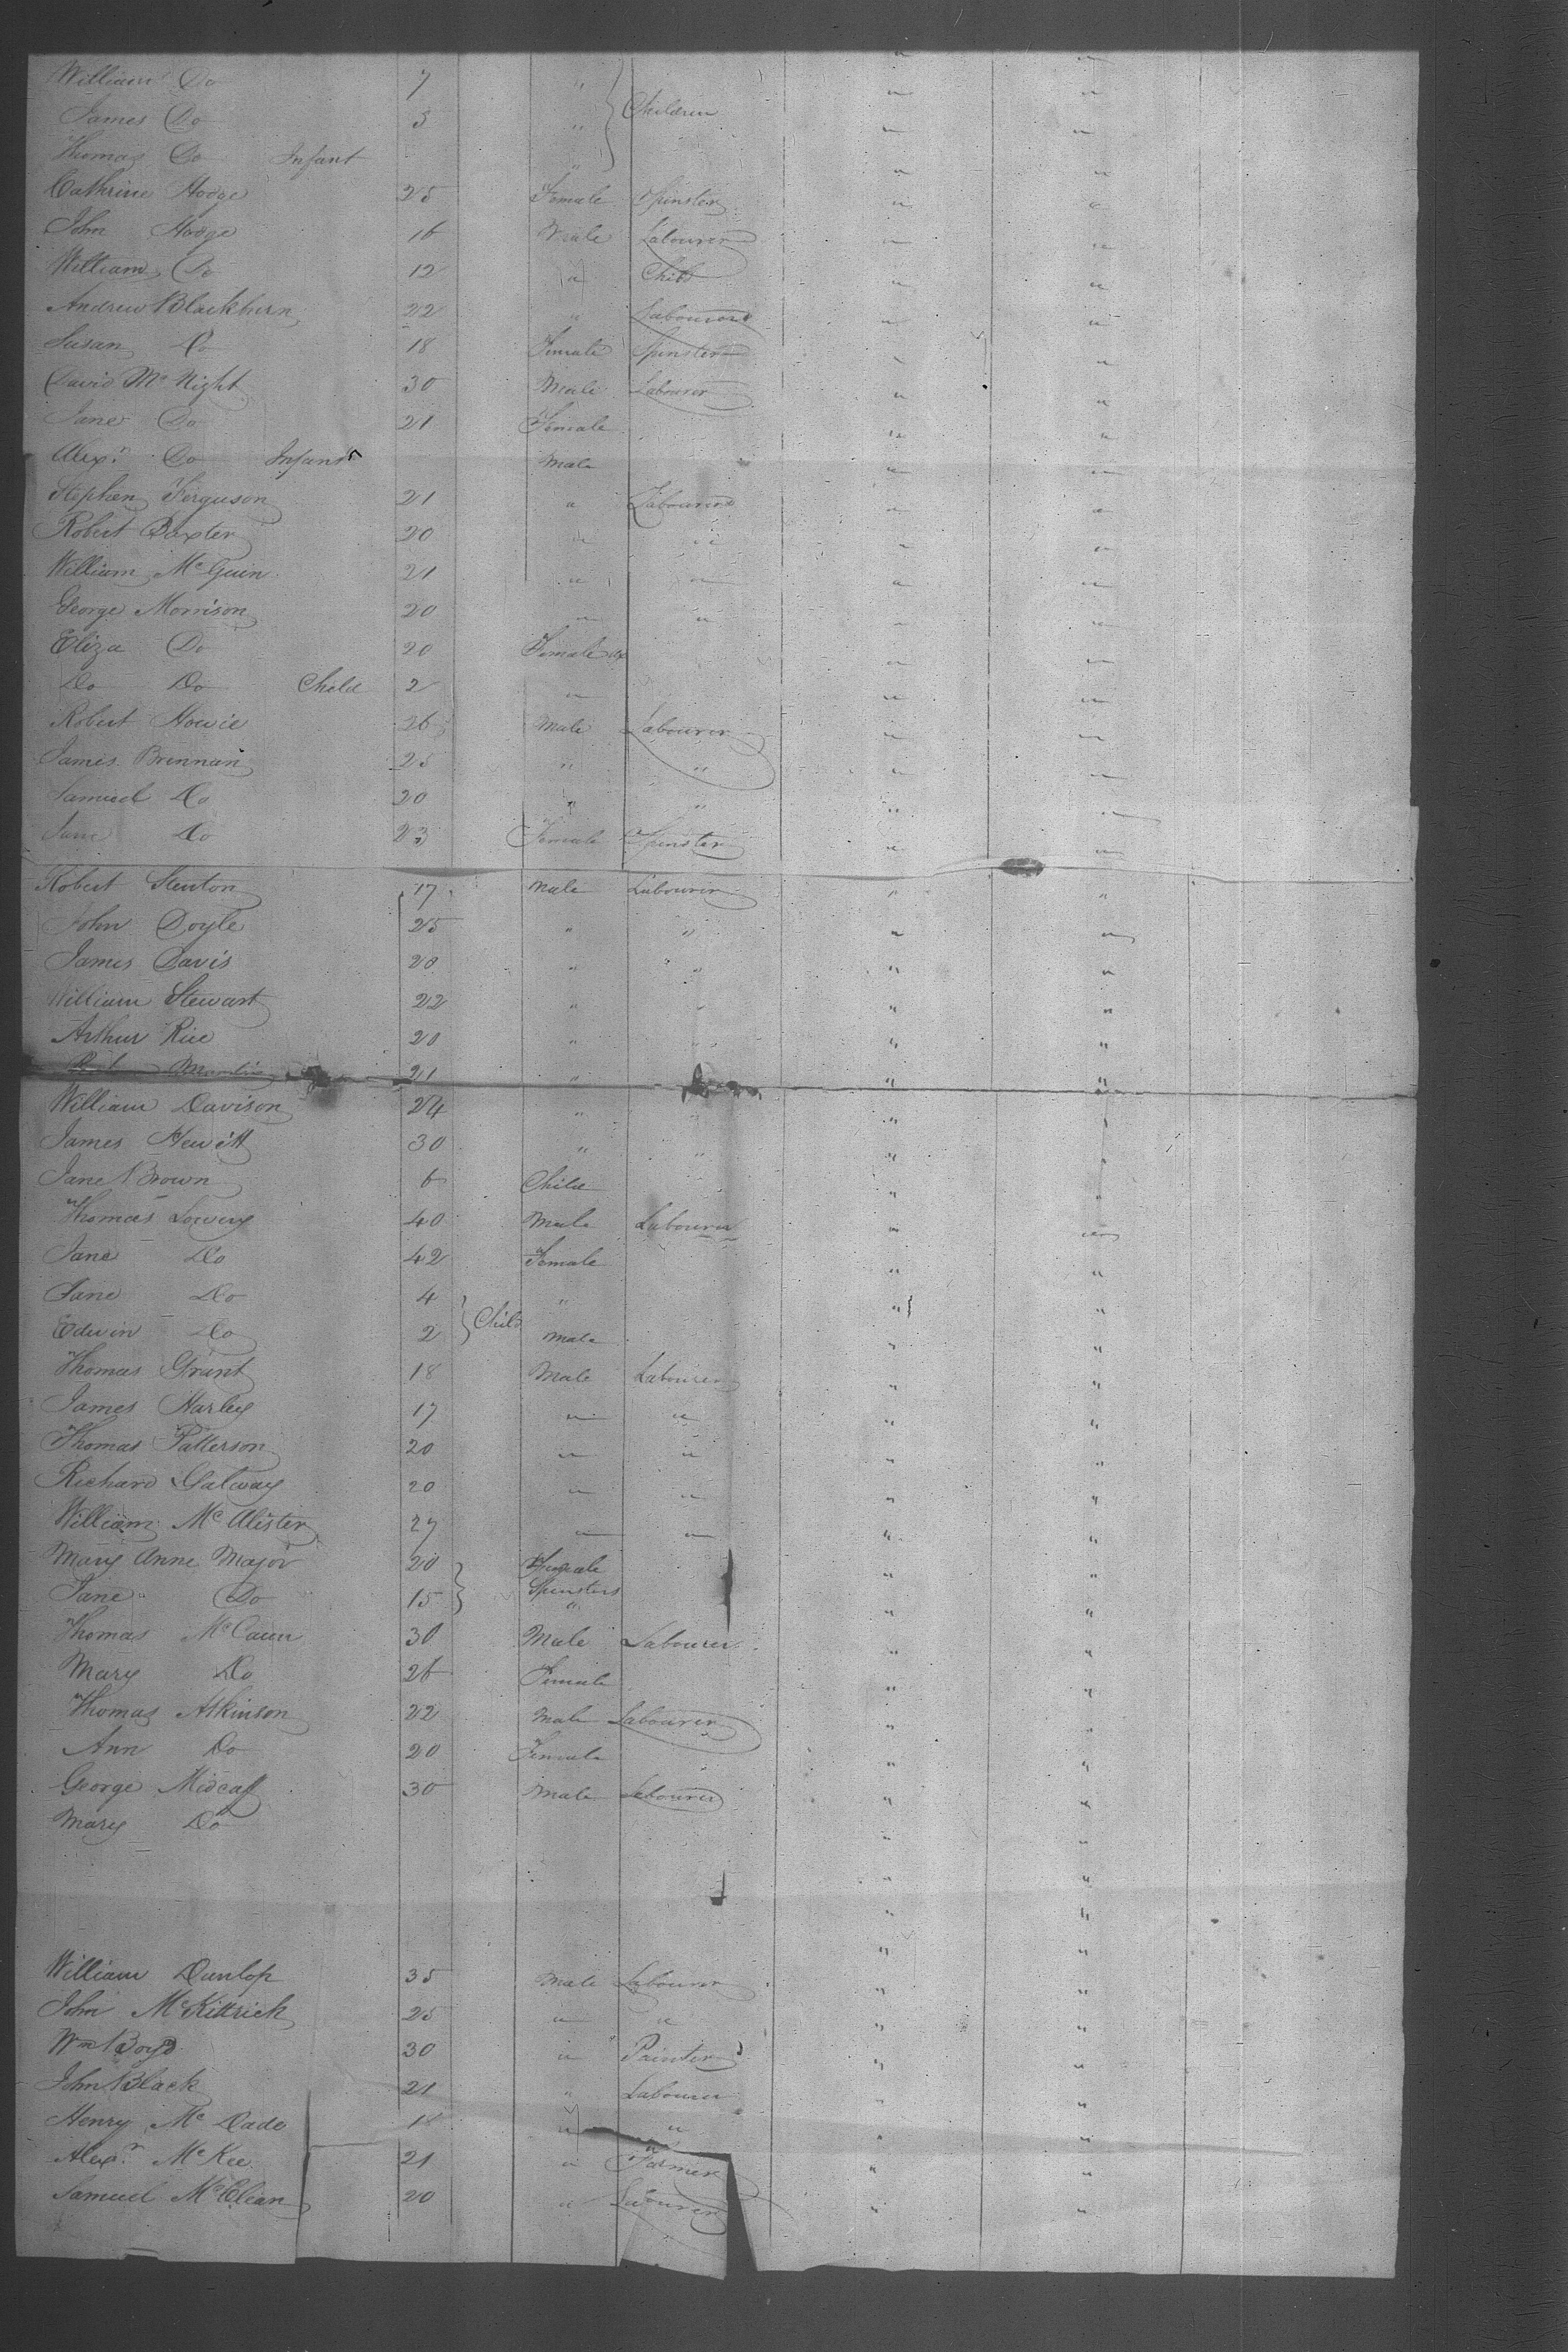 William Do 7 " } Children " "
James Do 5 " " "
Thomas Do Infant " " "
Cathrine Hodge 25 Female Spinster " "
John Hodge 16 Male Labourer " "
William Do 12 " Child " "
Andrew Blackburn 22 " Labourer " "
Susan Do 18 Female Spinster " "
David Mc Night 30 Male Labourer " "
Jane Do 21 Female " "
Alexr. Do Infant Male " "
Stephen Ferguson 21 " Labourer " "
Robert Baxter 20 " " " "
William Mc Guin 21 " " " "
George Morrison 20 " " " "
Eliza Do 20 Female " "
Do Do Child 2 " " "
Robert Howie 26 Male Labourer " "
James Brennan 25 " " " "
Samuel Do 20 " " " "
Jane Do 23 Female Spinster " "
Robert Stenton 17 Male Labourer " "
John Doyle 25 " " " "
James Davis 20 " " " "
William Stewart 22 " " " "
Arthur Rice 20 " " " "
Martin 21 " " "
William Davison 24 " " " "
James Hewitt 30 " " " "
Jane Brown 6 Child " "
Thomas Lowery 40 Male Labourer " "
Jane Do 42 Female " "
Jane Do 4 } Child " " "
Edwin Do 2 Male " "
Thomas Grant 18 Male Labourer " "
James Harley 17 " " " "
Thomas Patterson 20 " " " "
Richard Galway 20 " " " "
William Mc Alister 27 " " " "
Mary Anne Major 20 } Female Spinsters " "
Jane Do 15 " " "
Thomas Mc Caun 30 Male Labourer " "
Mary Do 26 Female " "
Thomas Atkinson 22 Male Labourer " "
Ann Do 20 Female " "
George Midcaff 30 Male Labourer " "
Mary Do " "
William Dunlop 35 Male Labourer " "
John Mc Kittrick 25 " " " "
Wm Boyd 30 " Painter " "
John Black 21 " Labourer " "
Henry Mc Dade 18 " " " "
Alexr. Mc Kee 21 " Farmer " "
Samuel Mc Clean 20 " Labourer " "